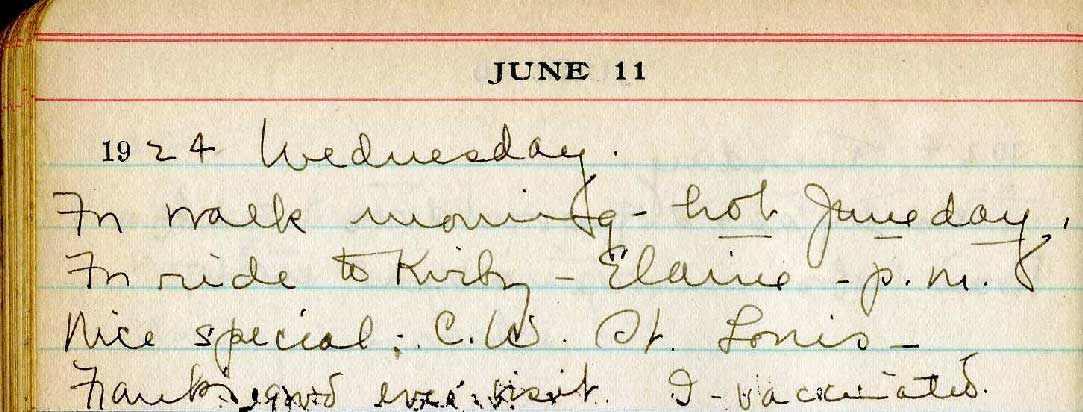 JUNE 11
1924 Wednesday.
In walk morning - hot June day,
In ride to Kirby - Elaine - p.m.
Nice special; C.W. St. Louis -
Frank good eve. visit. I - vaccinated.